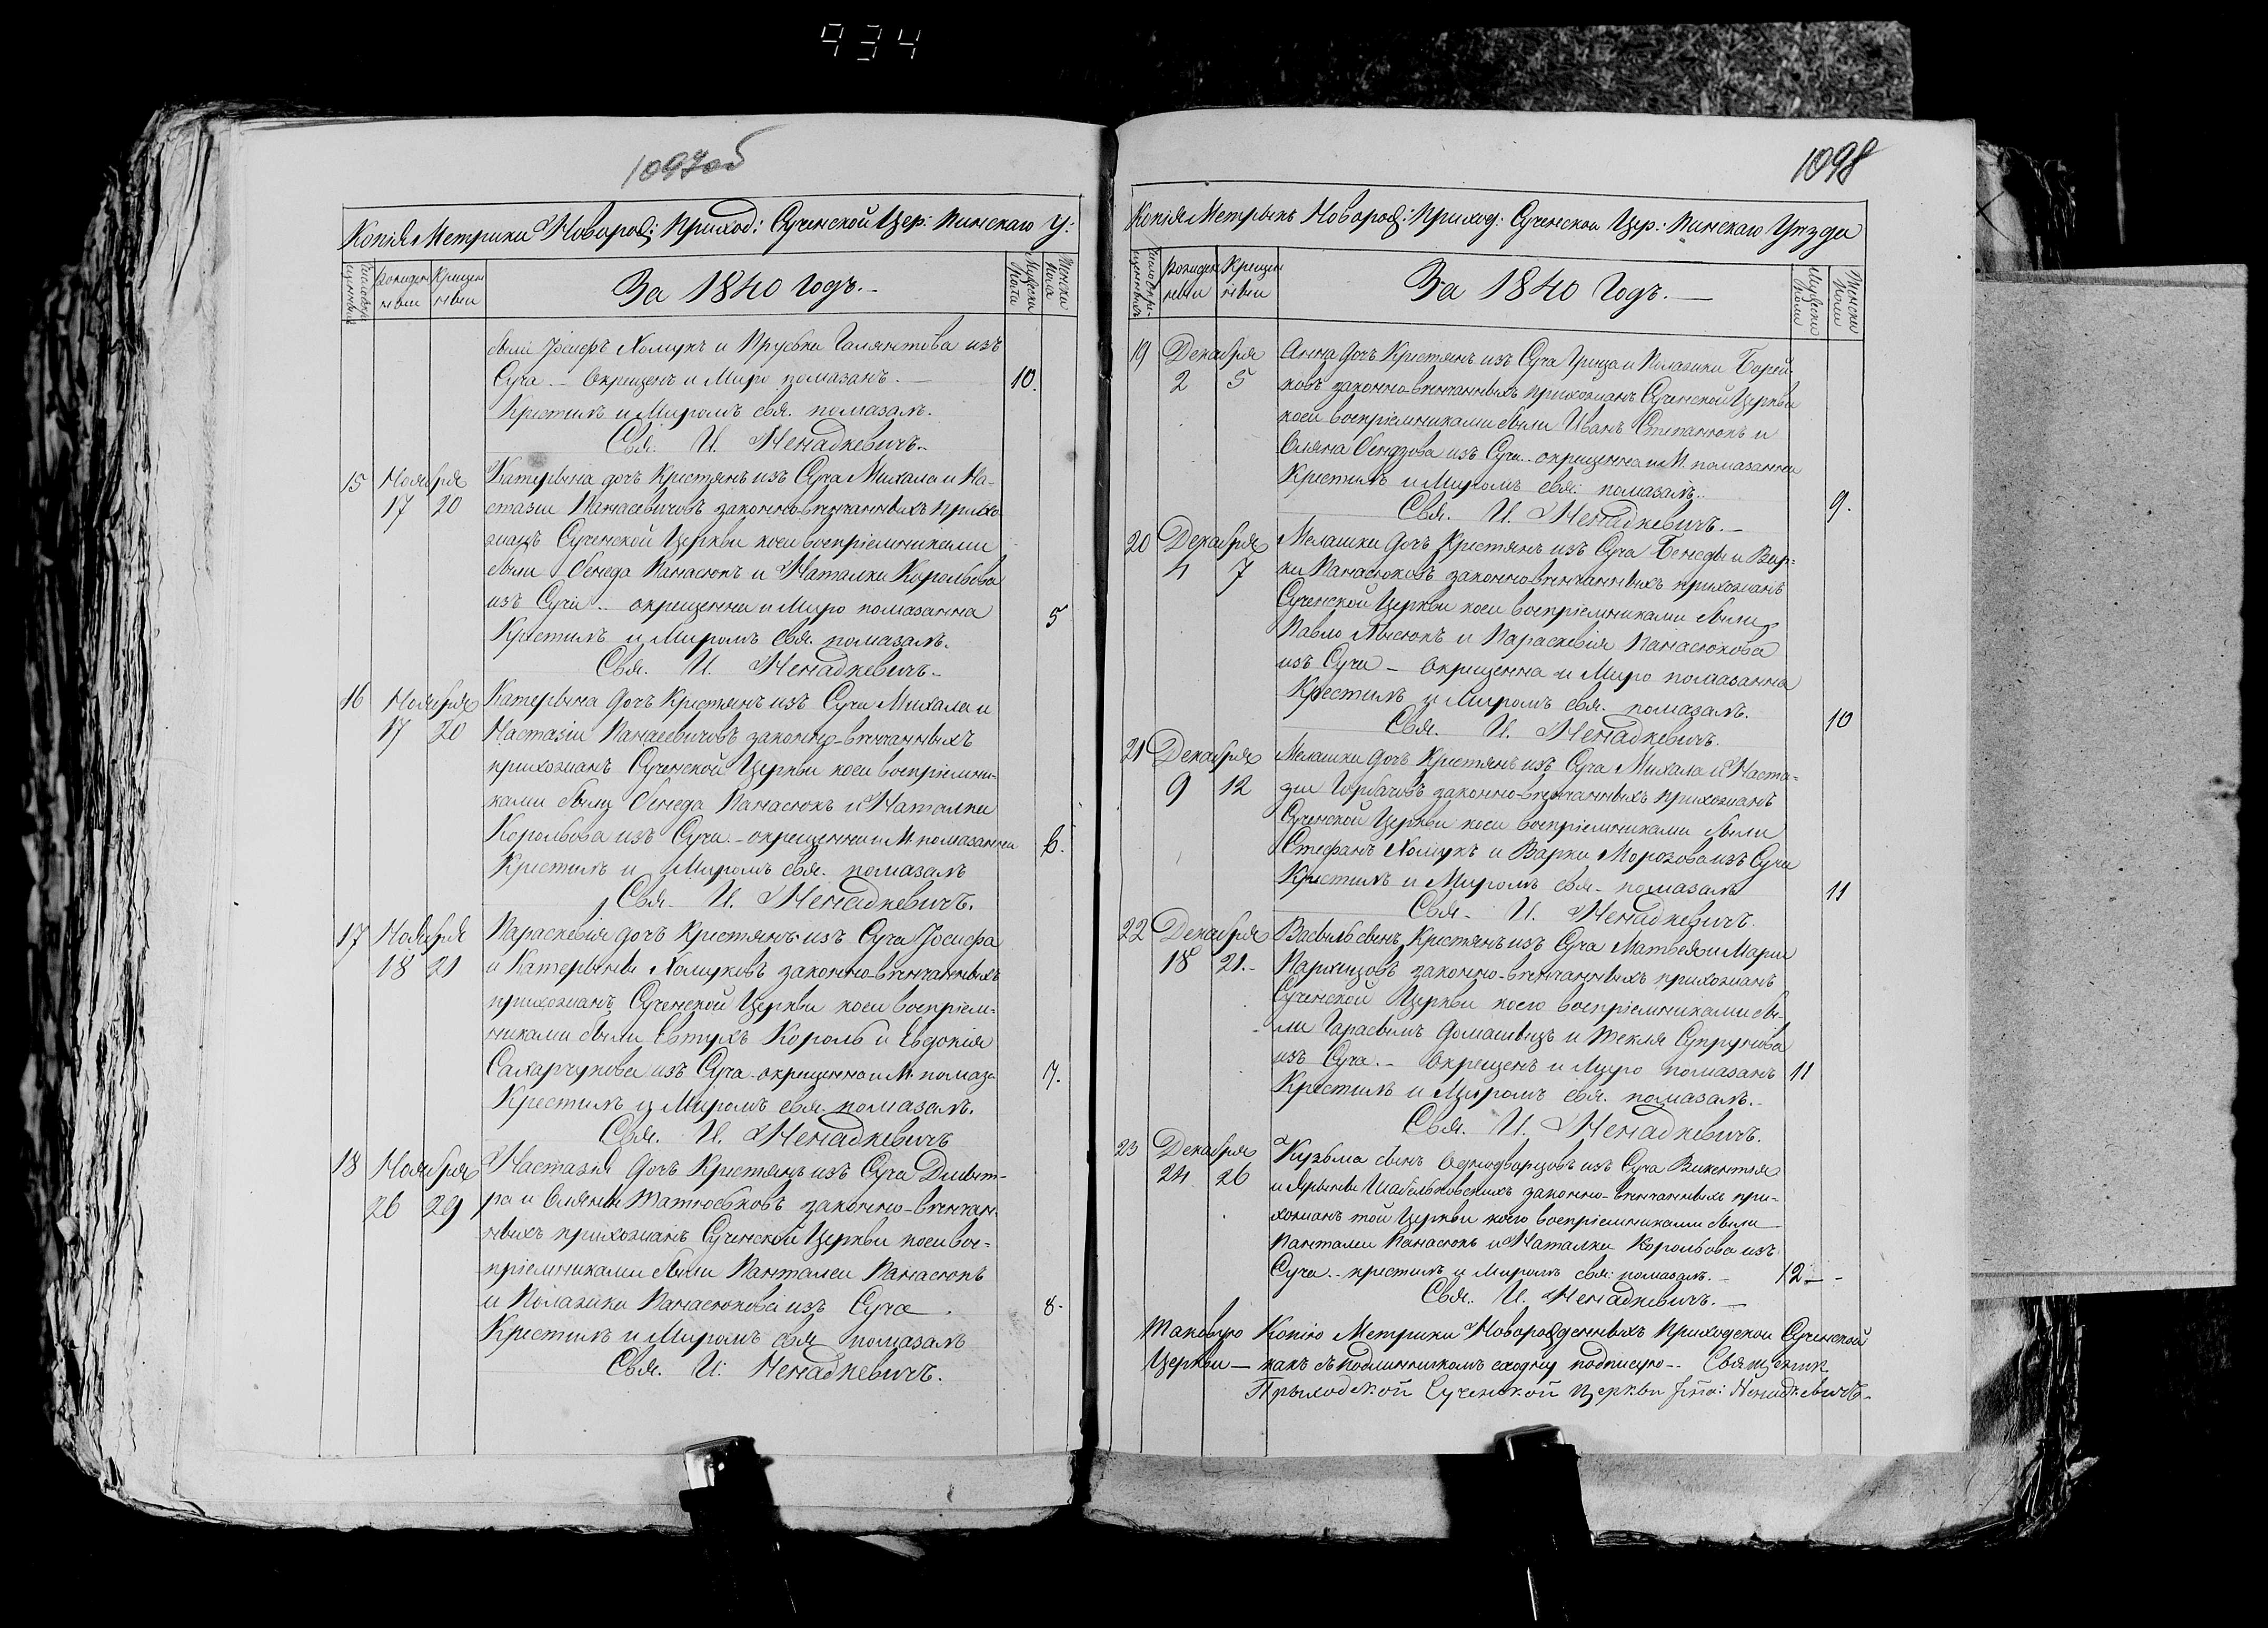 934
1097об
Копія Метрики Новорож: Приход: Сученской Цер: Пинскаго У:
Рожден Крещен
ныи ныи
За 1840 Годъ.-
Мужеска Пола
Женска Пола
были Іосифъ Хомукъ и Пруська изъ
Суча - Окрещенъ и Миро помазанъ. - 10.
Крестилъ и Миромъ свя. помазалъ.
Свя. И. Ненадкевичъ.
15 Ноября Катерына дочъ Крестянъ изъ Суча Михала и На-
17 20 стазіи Панасевичовъ законно-венчанныхъ прихо
жанъ Сученской Церкви коеи воспріемниками
были Бенеда Панасюкъ и Наталки Корольова
изъ Суча - окрещенна и Миро помазанна 5
Крестилъ и Миромъ свя. помазалъ.
Свя. И. Ненадкевичъ.
16 Ноября Катерына дочъ Крестянъ изъ Суча Михала и
17 20 Настазіи Панасевичовъ законно-венчанныхъ
прихожанъ Сученской Церкви коеи воспріемни-
ками были Бенеда Панасюкъ и Наталки
Корольова изъ Суча - окрещенна и М. помазанна 6.
Крестилъ и Миромъ свя. помазалъ
Свя. И. Ненадкевичъ.
17 Ноября Параскевія дочъ Крестянъ изъ Суча Іосифа
18 21 и Катерыны Хомуковъ законно-венчанныхъ
прихожанъ Сученской Церкви коеи воспріем-
никами были Евтухъ Король и Евдокія
Сахарчукова изъ Суча - окрещенна и М. помаза 7.
Крестилъ и Миромъ свя. помазалъ.
Свя. И. Ненадкевичъ
18 Ноября Настазія дочъ Крестянъ изъ Суча Дмыт-
26 29 ра и Оляны законно-венчан-
ныхъ прихожанъ Сученской Церкви коеи вос-
пріемниками были Панталеи Панасюкъ
и Полазики Панасюкова изъ Суча. 8.
Крестилъ и Миромъ свя помазалъ
Свя. И. Ненадкевичъ.
1098
Копія Метрыкъ Новорож: Приход: Сученской Цер: Пинскаго Уезда
Рожден Крещен
ныи ныи
За 1840 Годъ.-
Мужеска Пола
Женска Пола
19 Декабря Анна дочъ Крестянъ изъ Суча Грица и Полазики Борей-
2 5 ковъ законно-венчанныхъ прихожанъ Сученской Церкви
коеи воспріемниками были Иванъ Степанюкъ и
Оляна изъ Суча - окрещенна и М. помазанна
Крестилъ и Миромъ свя. помазалъ. 9.
Свя. И. Ненадкевичъ.-
20 Декабря Мелашки дочъ Крестянъ изъ Суча Бенеды и Вар-
4 7 ки Панасюковъ законно-венчанныхъ прихожанъ
Сученской Церкви коеи воспріемниками были
Павло Лысюкъ и Параскевія Панасюкова
изъ Суча - окрещенна и Миро помазанна
Крестилъ и Миромъ свя. помазалъ. 10
Свя. И. Ненадкевичъ.
21 Декабря Мелашки дочъ Крестянъ изъ Суча Михала и Наста-
9 12 зіи Горбачовъ законно-венчанныхъ прихожанъ
Сученской Церкви коеи воспріемниками были
Стефанъ Хомукъ и Варки Морозова изъ Суча
Крестилъ и Миромъ свя. помазалъ 11
Свя. И. Ненадкевичъ.
22 Декабря Васыль сынъ Крестянъ изъ Суча Матвея и Марии
18 21.- законно-венчанныхъ прихожанъ
Сученской Церкви коего воспріемниками бы-
ли Гарасымъ Домашевицъ и Текля Супрунова
изъ Суча - Окрещенъ и Миро помазанъ 11
Крестилъ и Миромъ свя. помазалъ.
Свя. И. Ненадкевичъ.
23 Декабря Кузьма сынъ Однодворцовъ изъ Суча Викентія
24 26 и Ярыны Шабельковскихъ законно-венчанныхъ при-
хожанъ той Церкви коего воспріемниками были
Панталеи Панасюкъ и Наталки Корольова изъ
Суча - крестилъ и Миромъ свя. помазалъ. 12 -
Свя. И. Ненадкевичъ.
Таковую Копію Метрики Новорожденныхъ Приходскои Сученской
Церкви - какъ съ подлинникомъ сходну подписую -. Священик
Прыходской Сученской Церкви Ненадкевичъ.